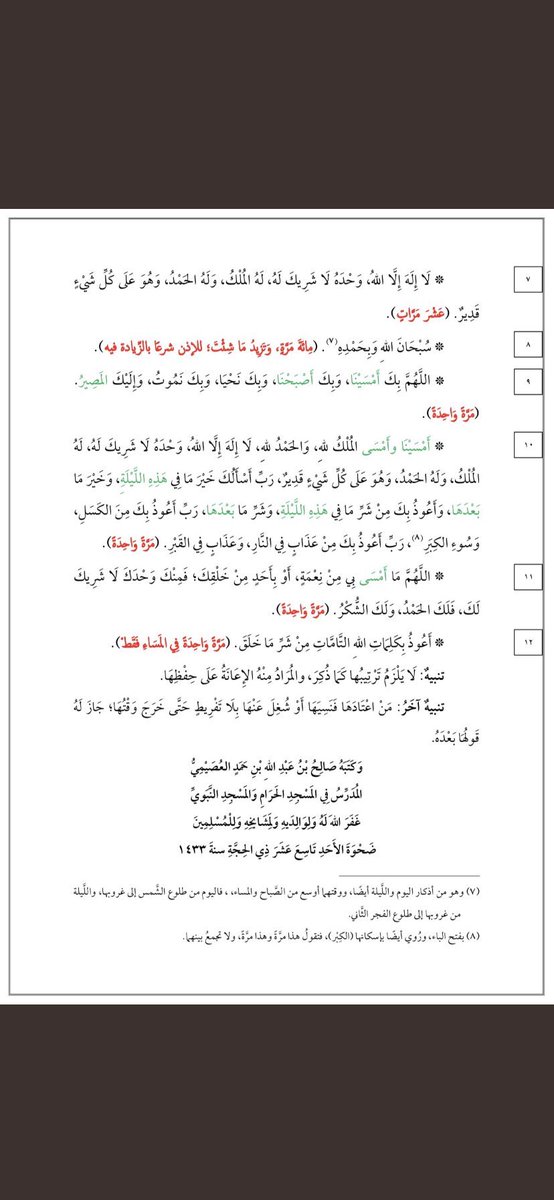 ٧
❊ لَا إِلَهَ إِلَّا اللهُ، وَحْدَهُ لَا شَرِيكَ لَهُ، لَهُ المُلْكُ، وَلَهُ الحَمْدُ، وَهُوَ عَلَى كُلِّ شَيْءٍ
قَدِيرٌ. (عَشْرَ مَرَّاتٍ).
٨
❊ سُبْحَانَ اللهِ وَبِحَمْدِهِ(٧). (مِائَةَ مَرَّةٍ، وَتَزِيدُ مَا شِئْتَ؛ للإذن شرعًا بالزِّيادة فيه).
٩
❊ اللَّهُمَّ بِكَ أَمْسَيْنَا، وَبِكَ أَصْبَحْنَا، وَبِكَ نَحْيَا، وَبِكَ نَمُوتُ، وَإِلَيْكَ المَصِيرُ.
(مَرَّةً وَاحِدَةً).
١٠
❊ أَمْسَيْنَا وأَمْسَى المُلْكُ للهِ، وَالحَمْدُ للهِ، لَا إِلَهَ إِلَّا اللهُ، وَحْدَهُ لَا شَرِيكَ لَهُ، لَهُ
المُلْكُ، وَلَهُ الحَمْدُ، وَهُوَ عَلَى كُلِّ شَيْءٍ قَدِيرٌ، رَبِّ أَسْأَلُكَ خَيْرَ مَا فِي هَذِهِ اللَّيْلَةِ، وَخَيْرَ مَا
بَعْدَهَا، وَأَعُوذُ بِكَ مِنْ شَرِّ مَا فِي هَذِهِ اللَّيْلَةِ، وَشَرِّ مَا بَعْدَهَا، رَبِّ أَعُوذُ بِكَ مِنَ الكَسَلِ،
وَسُوءِ الكِبَرِ(٨)، رَبِّ أَعُوذُ بِكَ مِنْ عَذَابٍ فِي النَّارِ، وَعَذَابٍ فِي القَبْرِ. (مَرَّةً وَاحِدَةً).
١١
❊ اللَّهُمَّ مَا أَمْسَى بِي مِنْ نِعْمَةٍ، أَوْ بِأَحَدٍ مِنْ خَلْقِكَ؛ فَمِنْكَ وَحْدَكَ لَا شَرِيكَ
لَكَ، فَلَكَ الحَمْدُ، وَلَكَ الشُّكْرُ. (مَرَّةً وَاحِدَةً).
١٢
❊ أَعُوذُ بِكَلِمَاتِ اللهِ التَّامَّاتِ مِنْ شَرِّ مَا خَلَقَ. (مَرَّةً وَاحِدَةً فِي المَسَاءِ فَقَطْ).
تنبيهٌ: لَا يَلْزَمُ تَرْتِيبُهَا كَمَا ذُكِرَ، وَالمُرَادُ مِنْهُ الإِعَانَةُ عَلَى حِفْظِهَا.
تنبيهٌ آخَرُ: مَنْ اعْتَادَهَا فَنَسِيَهَا أَوْ شُغِلَ عَنْهَا بِلَا تَفْرِيطٍ حَتَّى خَرَجَ وَقْتُهَا؛ جَازَ لَهُ
قَولُهَا بَعْدَهُ.
وَكَتَبَهُ صَالِحُ بْنُ عَبْدِ اللهِ بْنِ حَمَدٍ العُصَيْمِيُّ
المُدَرِّسُ فِي المَسْجِدِ الحَرَامِ وَالمَسْجِدِ النَّبَوِيِّ
غَفَرَ اللهُ لَهُ وَلِوَالِدَيهِ وَلِمَشَايِخِهِ وَلِلْمُسْلِمِينَ
ضَحْوَةَ الأَحَدِ تَاسِعَ عَشَرَ ذِي الحِجَّةِ سنةَ ١٤٣٣
(٧) وهو من أذكار اليوم واللَّيلة أيضًا، ووقتهما أوسع من الصَّباح والمساء،، فاليوم من طلوع الشَّمس إلى غروبها، واللَّيلة
من غروبها إلى طلوع الفجر الثَّاني.
(٨) بفتح الباء، ورُوي أيضًا بإسكانها (الكِبْر)، فتقولُ هذا مرَّةً وهذا مرَّةً، ولا تجمعُ بينهما.